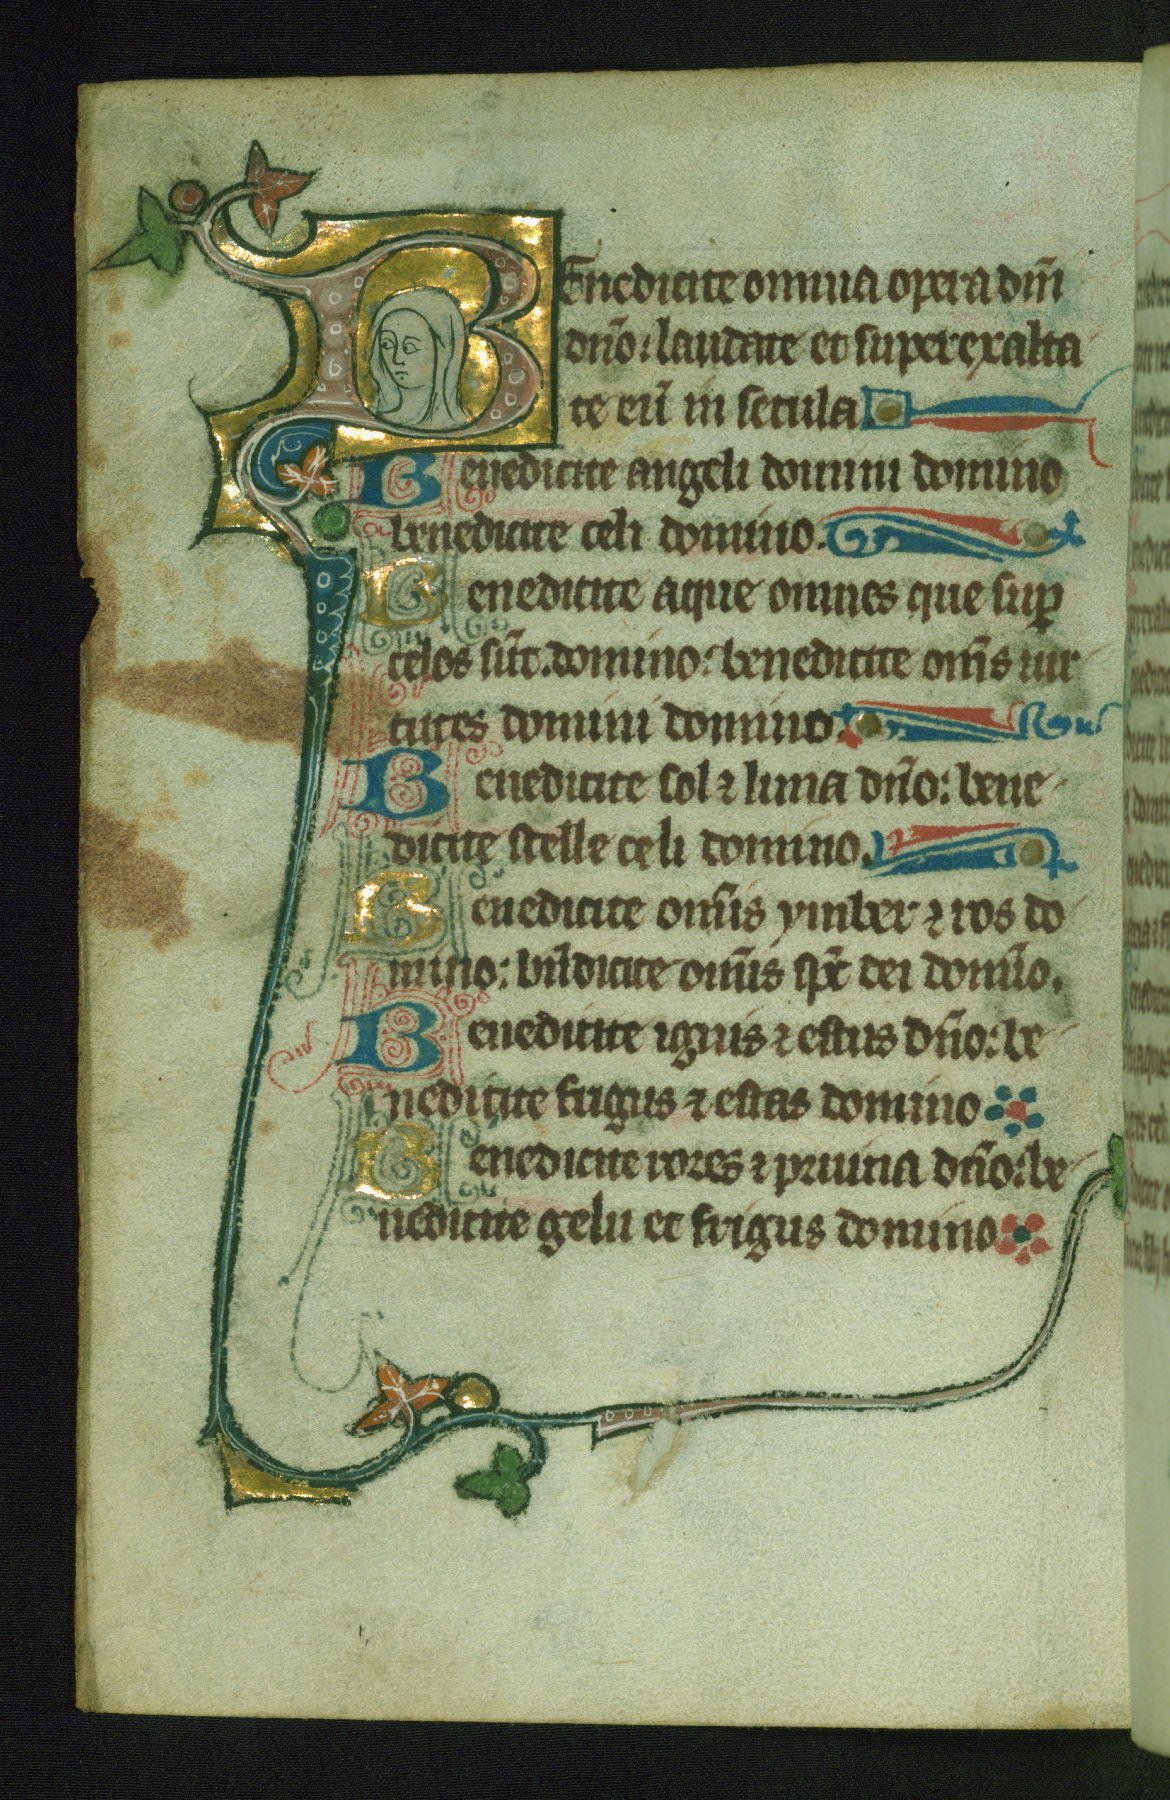 Benedicite omnia opera dñi
dño: laudate et superexalta
te eū in secula
Benedicite angeli domini domino
benedicite celi domino.
Benedicite aque omnes que sup
celos sūt. domino: benedicite om̄s uir
tutes domini domino.
Benedicite sol ⁊ luna dño: bene
dicite stelle celi domino.
Benedicite omīs ymber ⁊ ros do
mino: bn̄dicite omīs sp̄c dei domīo.
Benedicite ignis ⁊ estus dño: be
nedicite frigus ⁊ estas domino
Benedicite rores ⁊ pruina dño: be
nedicite gelu et frigus domino